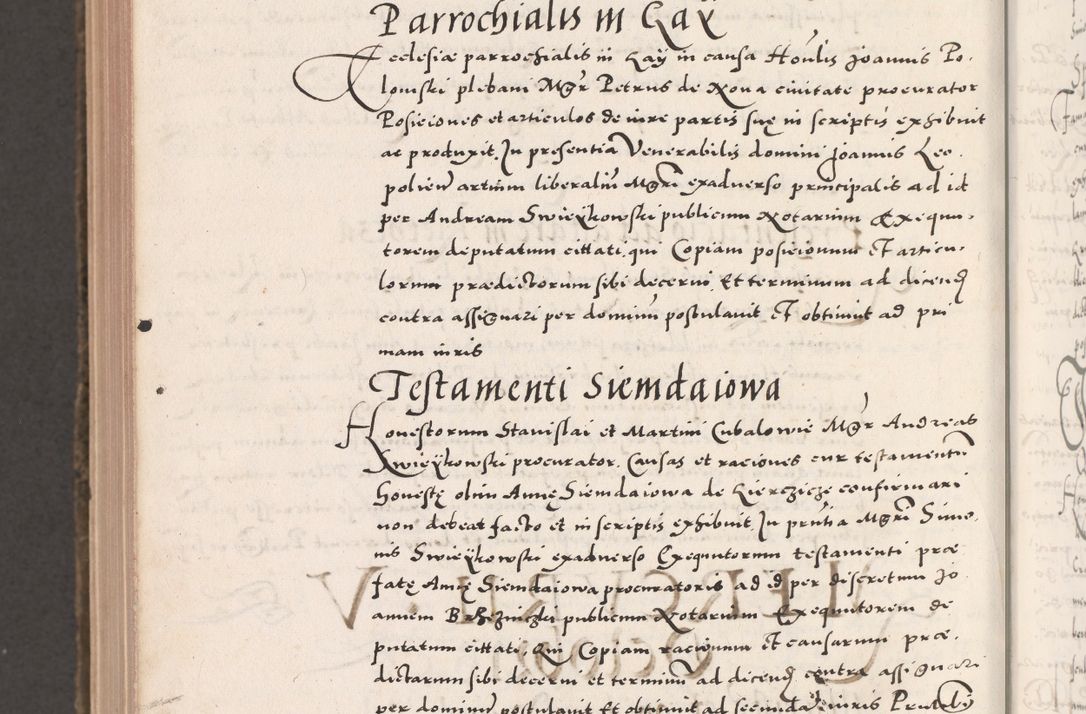 Parrochialis in Gay
Ecclesiæ parrochialis in Gay in causa Honlis Joannis Po,
lomski plebani Mgr Petrus de Nova civitate procurator
Posiciones et articulos de iure partis suę in scriptis exhibuit
ac produxit. In presentia Venerabilis domini Joannis Leo,
poliens artium liberaliu Mgri exadverso principalis ad id
per Andream Swieykowski publicum Notarium Exequu,
torem deputatum cittati, qui Copiam posicionum Et articu,
lorum prædictorum sibi decerni. Et terminum ad dicend
contra assignari per dominu postulavit Et obtinuit ad pri
mam iuris
Testamenti Siemdaiowa
Honestorum Stanislai et Martini Cubalowie Mgr Andreas
Swieykowski procurator. Causas et raciones cur testamentu
honestę olim Annę Siemdaiowa de confirmari
non debeat facto et in scriptis exhibuit. In prntia Mgri Simo,
nis Swieykowski exadverso Exequutorum testamenti præ
fatę Annę Siemdaiowa procuratoris ad id per discretum Jo
annem publicum Notarium Exequutorem de
putatum cittati. Qui Copiam racionum Et causarum præ,
dictarum sibi decerni et terminu ad dicend contra assignari
per dominu postulavit Et obtinuit ad secunda iuris